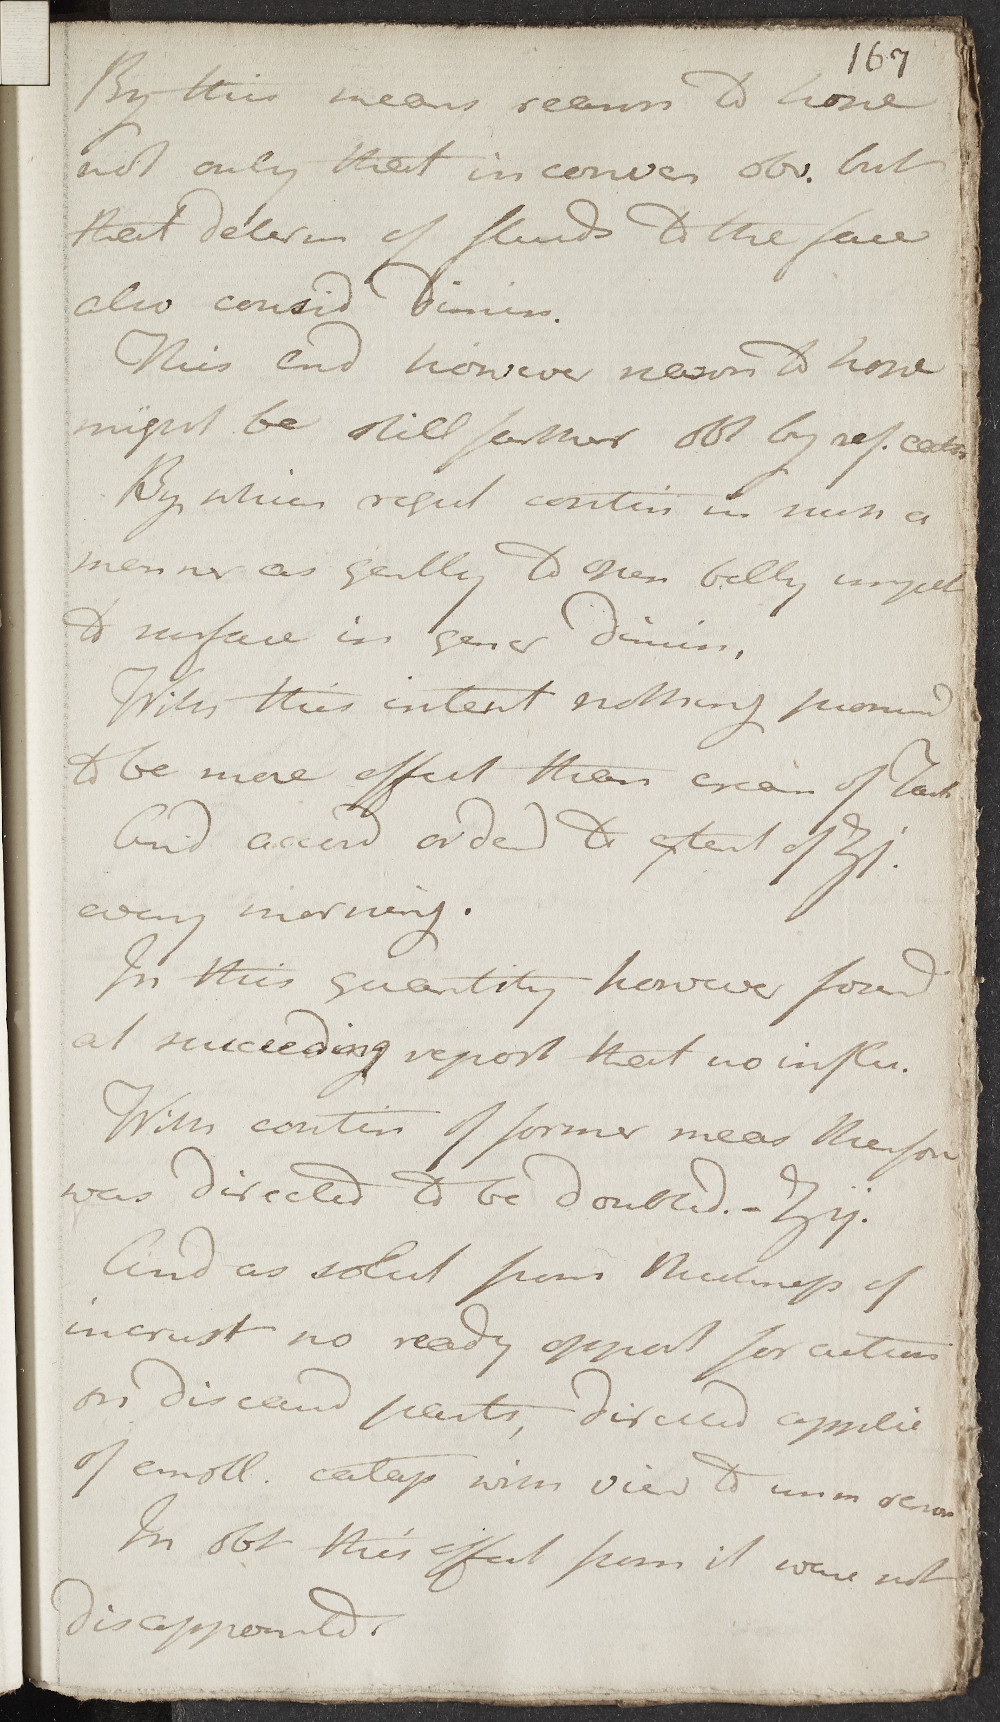 167
By this means reason to hope
not only that inconven obv. but
that determ of fluids to the face
also consid dimin.
This end however reason to hope
might be still farther obt by ref. cath
By which regul contin in such a
manner as gently to open belly impet
to surface in gener dimin,
With this intent nothing promised
to be more effect than cream of Tart
And accord ordered to extent of ʒj.
every morning.
In this quantity however found
at succeeding report that no influ.
With contin of former meas therefore
was directed to be doubled. - ʒij.
And as solut from thickness of
incrust no ready opport for action
on diseased parts, directed applic
of emoll. catap with view to remov
In obt this effect from it were not
disappointed.